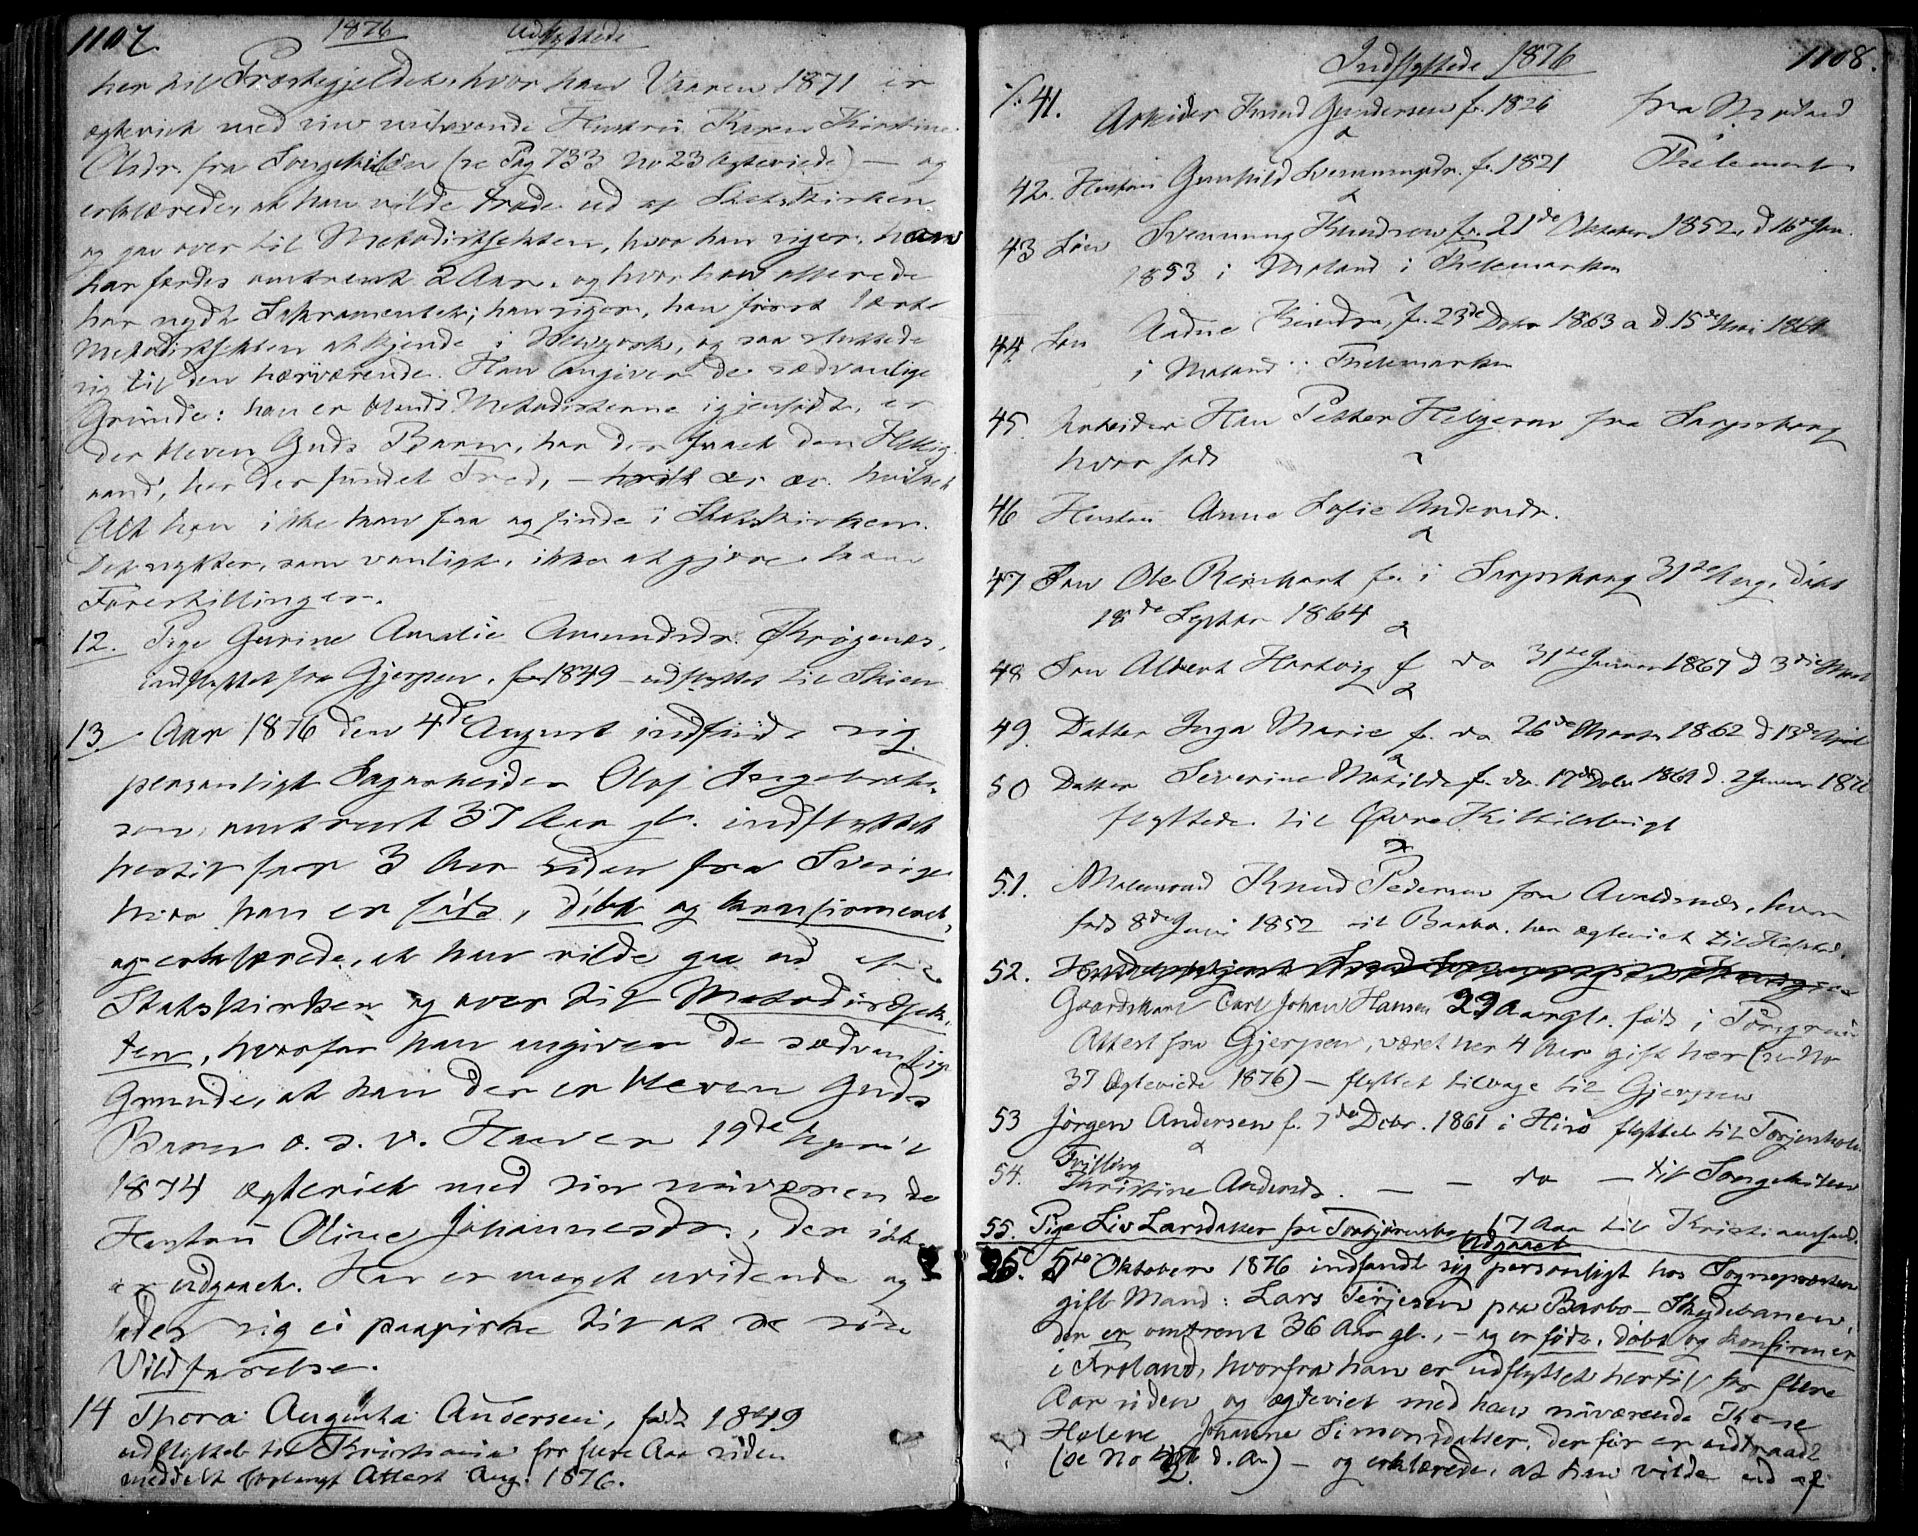 1107. 1876 Udflyttede
her til Præstegjeldet, hvor han Vaaren 1871 er
ægteviet med sin nuværende Hustru Karen Kirstine
Olsdr. fra Songekilen (se Pag 733 No 23 Ægteviede) — og
erklærede, at han vilde træde ud af Statskirken
og gaa over til Methodistsekten, hvor han siger, han
har færdes omtrent 2 Aar, og hvor han allerede
har nydt Sakramentet; han siger, han først lærte
Methodistsekten at kjende i Newyork, og saa sluttede
sig til den herværende. Han angiver de sædvanlige
Grunde: han er blandt Methodisterne igjenfødt, er
der bleven Guds Barn, har der faaet den Hellig
aand, har der fundet Fred, — hvilket
Alt han ikke kan faa og finde i Statskirken.
Det nytter, som vanligt, ikke at gjøre ham
Forestillinger.
12. Pige Gurine Amalie Amundsdr. Krøgenæs,
indflyttet fra Gjerpen, f. 1849 — udflyttet til Skien
13. Aar 1876 den 4de August indfandt sig
personligt Sagarbeider Olof Ingebrikt-
son, omtrent 37 Aar gl. indflyttet
hertil for 3 Aar siden fra Sverige
hvor han er født, døbt og konfirmeret,
og erklærede, at han vilde gaa ud af
Statskirken og over til Methodistsek-
ten, hvorfor han angiver de sædvanlige
Grunde, at han der er bleven Guds
Barn o. s. v. Han er 19de April
1874 ægteviet med sin nuværende
Hustru Oline Johannesdr., der ikke
er udgaaet. Han er meget uvidende og
lader sig ei paavirke til at se sin
Vildfarelse.
14 Thora Augusta Andersen, født 1849
udflyttet til Kristiania for flere Aar siden
meddelt forlangt Attest Aug. 1876.
Indflyttede 1876 1108.
41. Arbeider Knud Gundersen f. 1826 fra
42. Hustru Gunhild Svenningsdr. f. 1821 Thelemarken
43 Søn Svenning Knudsen f. 21de Oktober 1852, d 16de Jan.
1853 i Moland i Thelemarken
44 Søn Aadne Knudsen, f. 23de Dcbr 1863 d. 15de Mai 1864
i Moland i Thelemarken
45. Arbeider Hans Petter Helgesen fra Sarpsborg
hvor født
46 Hustru Anne Sofie Andersdr.
47 Søn Ole Reinhart f. i Sarpsborg 31te Aug. døbt
18de Septbr 1864
48 Søn Albert Hartvig f do 31te Januar 1867 d 3die Marts
49. Datter Inga Marie f. do 26de Marts 1862 d 13de April
50 Datter Severine Mathilde f. do. 17de Dcbr 1869 d. 2 Januar 1870
flyttede til Øvre Kittilsbugt
51. Malersvend Knud Pedersen fra Avaldsnæs, hvor
født 8de Juni 1852 til Barbo. her ægteviet til Hafstad.
52.
Gaardskarl Carl Johan Hansen 29 Aar gl. født i Porsgrun
Attest fra Gjerpen, været her 4 Aar gift her (se No
37 Ægteviede 1876) — flyttet tilbage til Gjerpen
53 Jørgen Andersen f. 7de Dcbr. 1861 i Hisø flyttet til Torjusholm
54. Tvilling
Kirstine Andersdr. — — do — til Songekilen
55. Pige Liv Larsdatter fra Torbjørnsbo 17 Aar til Kristiansand.
Udgaaet
25. 5te Oktober 1876 indfandt sig personligt hos Sognepræsten
gift Mand: Lars Terjesen paa Barbo — Skydebanen,
der er omtrent 36 Aar gl., — og er født, døbt og konfirmer
i Froland, hvorfra han er udflyttet hertil for flere
Aar siden og ægteviet med hans nuværende Kone
Helene Johanne Simonsdatter, der før er udtraadt
(se No d. A.) — og erklærede, at han vilde ud af
2.